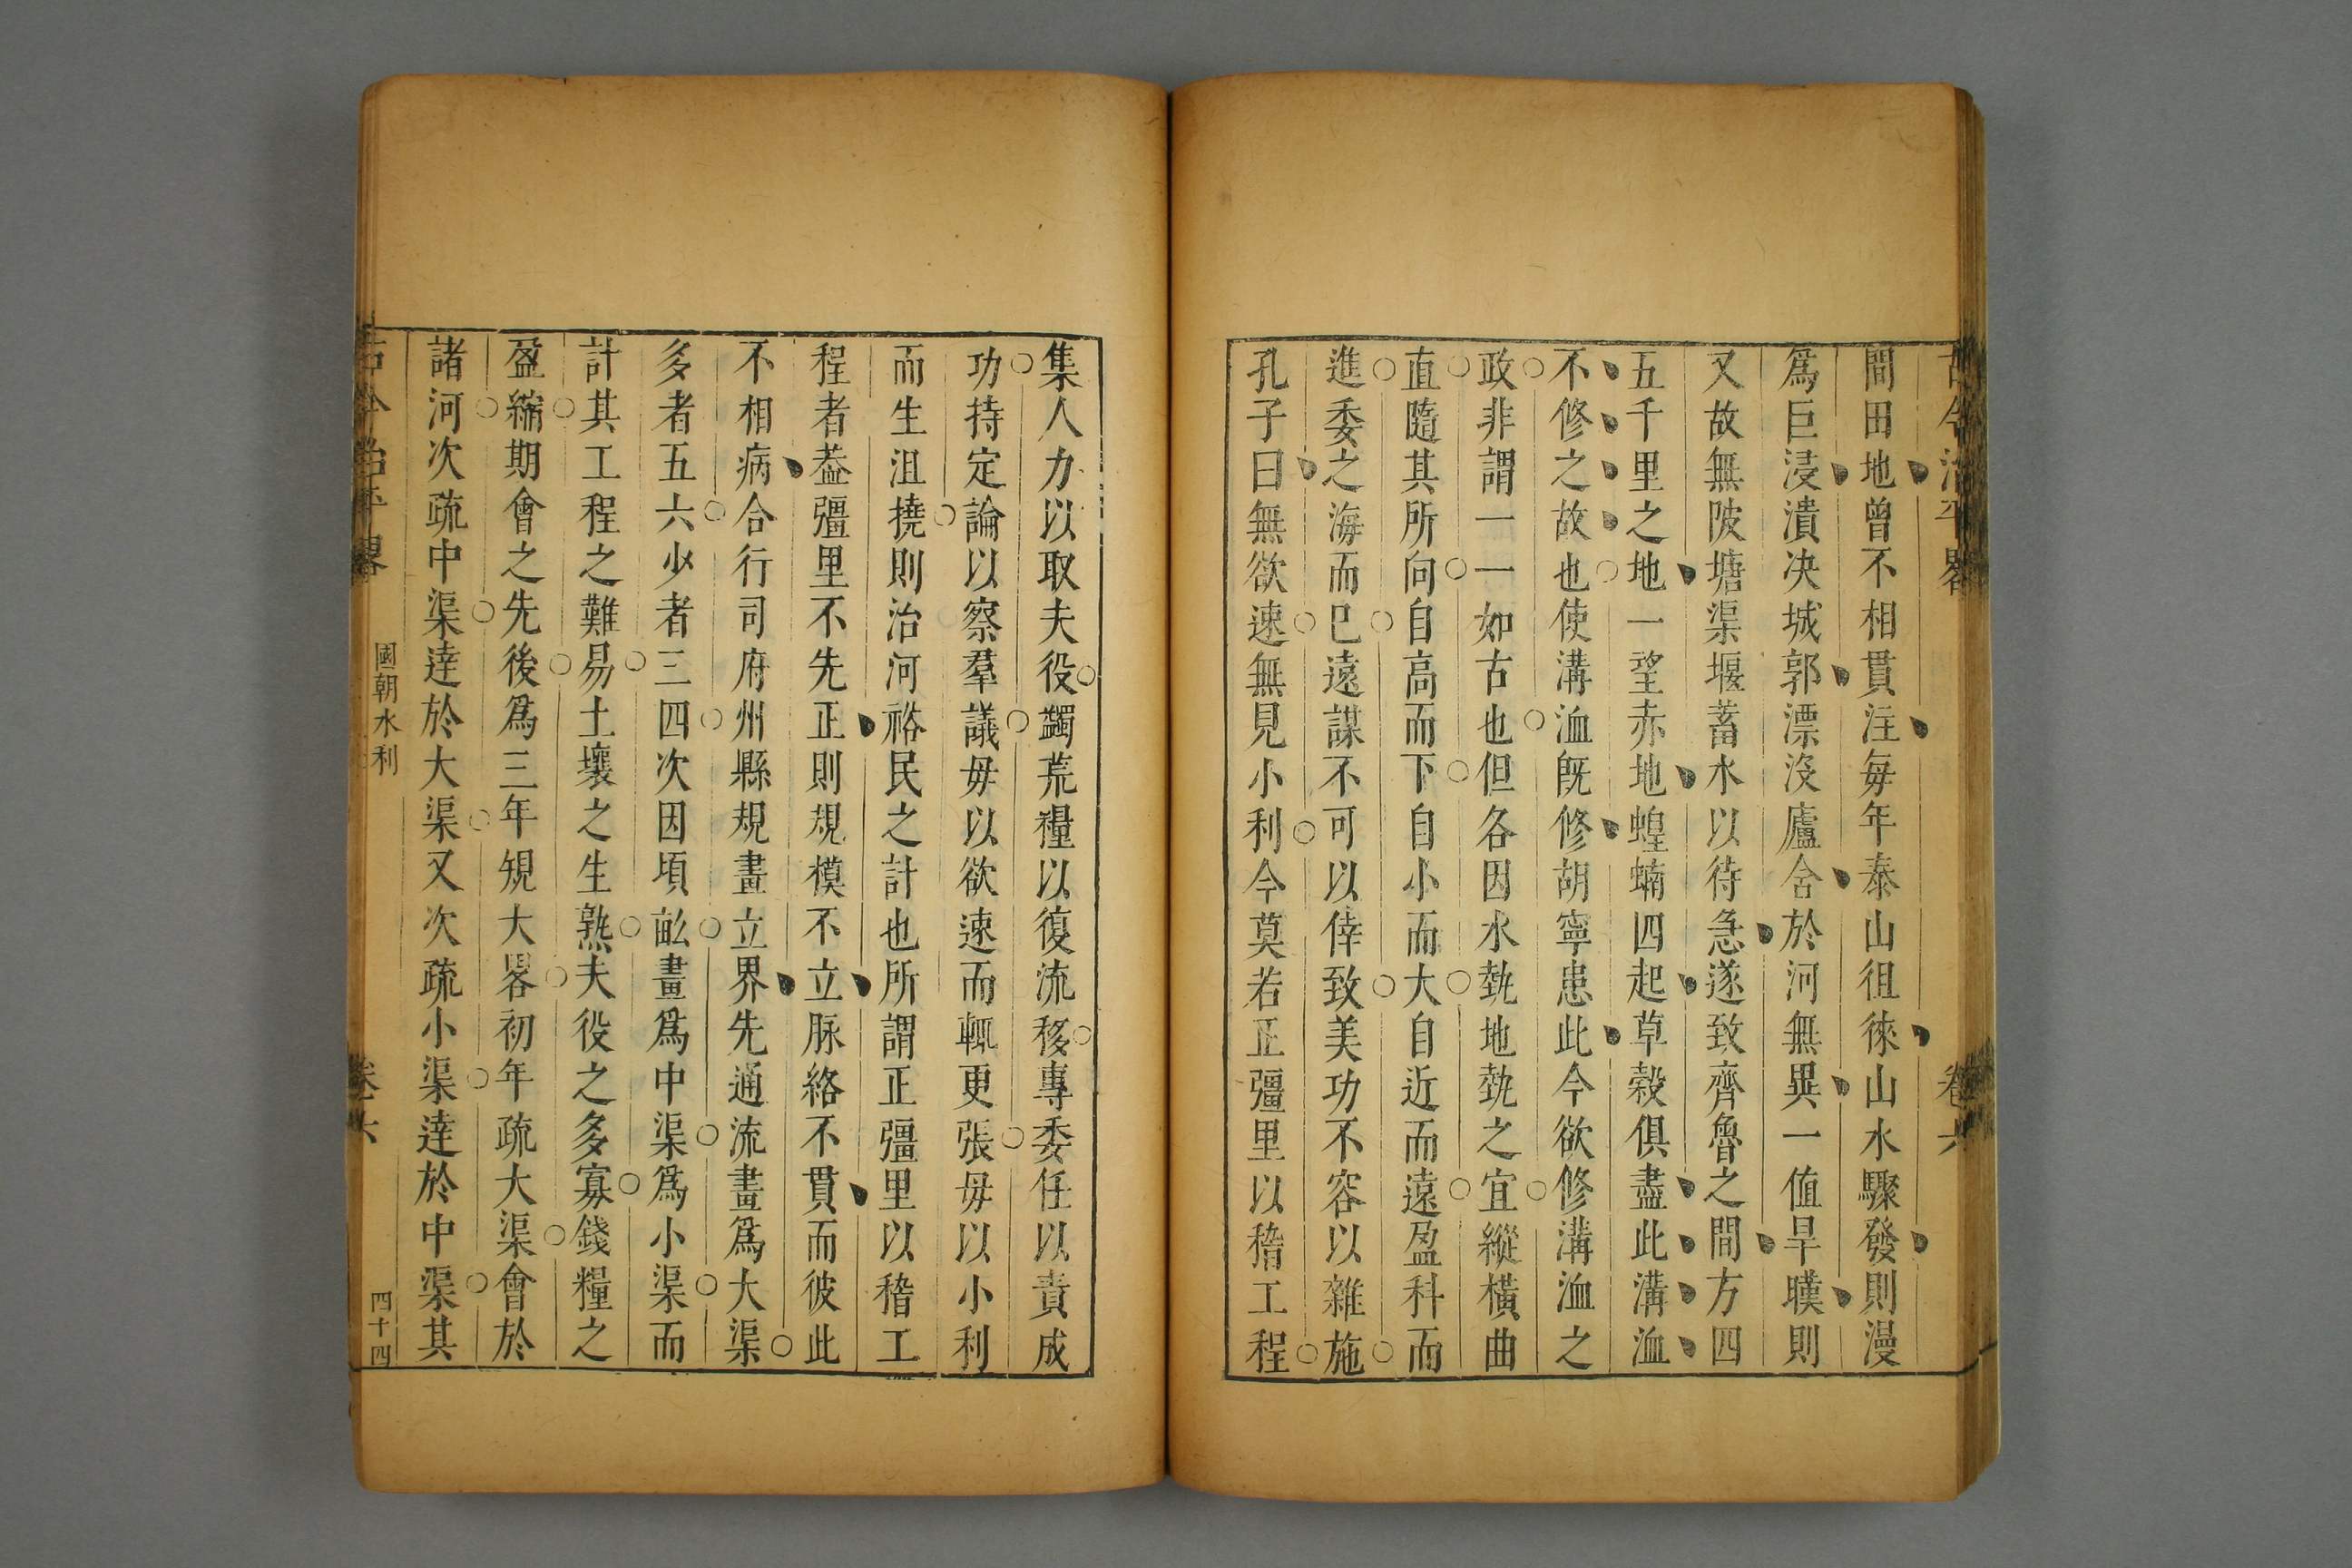 古今治平畧 卷六
間田地曾不相貫注每年泰山徂徠山水驟發則漫
爲巨浸潰决城郭漂沒廬舍於河無異一值旱暵則
又故無陂塘渠堰蓄水以待急遂致齊魯之間方四
五千里之地一望赤地蝗蝻四起草穀俱盡此溝洫
不修之故也使溝洫旣修胡寧患此今欲修溝洫之
政非謂一一如古也但各因水埶地埶之宜縱橫曲
直隨其所向自高而下自小而大自近而遠盈科而
進委之海而已遠謀不可以倖致美功不容以雜施
孔子曰無欲速無見小利今莫若正彊里以稽工程
集人力以取夫役蠲荒糧以復流移專委任以責成
功持定論以察羣議毋以欲速而輒更張毋以小利
而生沮撓則治河裕民之計也所謂正彊里以稽工
程者葢彊里不先正則規模不立脉絡不貫而彼此
不相病合行司府州縣規畫立界先通流畫爲大渠
多者五六少者三四次因頃畆畫爲中渠爲小渠而
計其工程之難易土壤之生熟夫役之多寡錢糧之
盈縮期會之先後爲三年規大畧初年疏大渠會於
諸河次疏中渠達於大渠又次疏小渠達於中渠其
古今治平畧 國朝水利 卷六 四十四